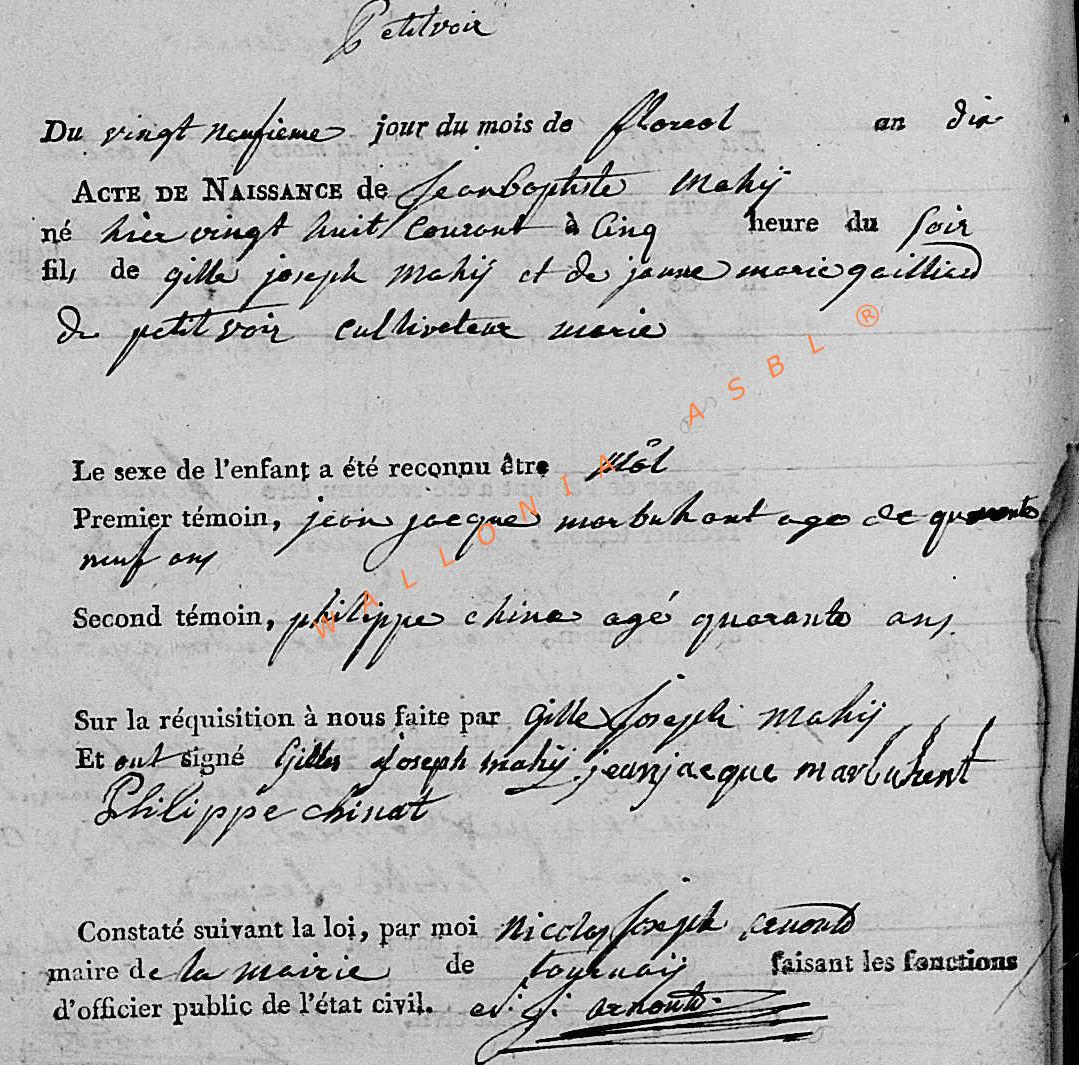 Petitvoir
Du vingt neufieme jour du mois de floreal an dix
ACTE DE NAISSANCE de Jean baptiste Mahij
né hier vingt huit Courant à Cinq heure du Soir
fils de gille joseph Mahij et de janne marie gaillard
de petit voir cultivateur marie
Le sexe de l'enfant a été reconnu être mâl
Premier témoin, jean jacque marbuhant age de quarante
neuf ans
Second témoin, philippe china agé quarante ans
Sur la réquisition à nous faite par Gille Joseph Mahij
Et ont signé Gilles Joseph mahij jean jacque marbuhent
Philippe chinat
Constaté suivant la loi, par moi Nicolas Joseph arnould
maire de la mairie de tournaij faisant les fonctions
d'officier public de l'état civil. arnould
WALLONIA ASBL ®